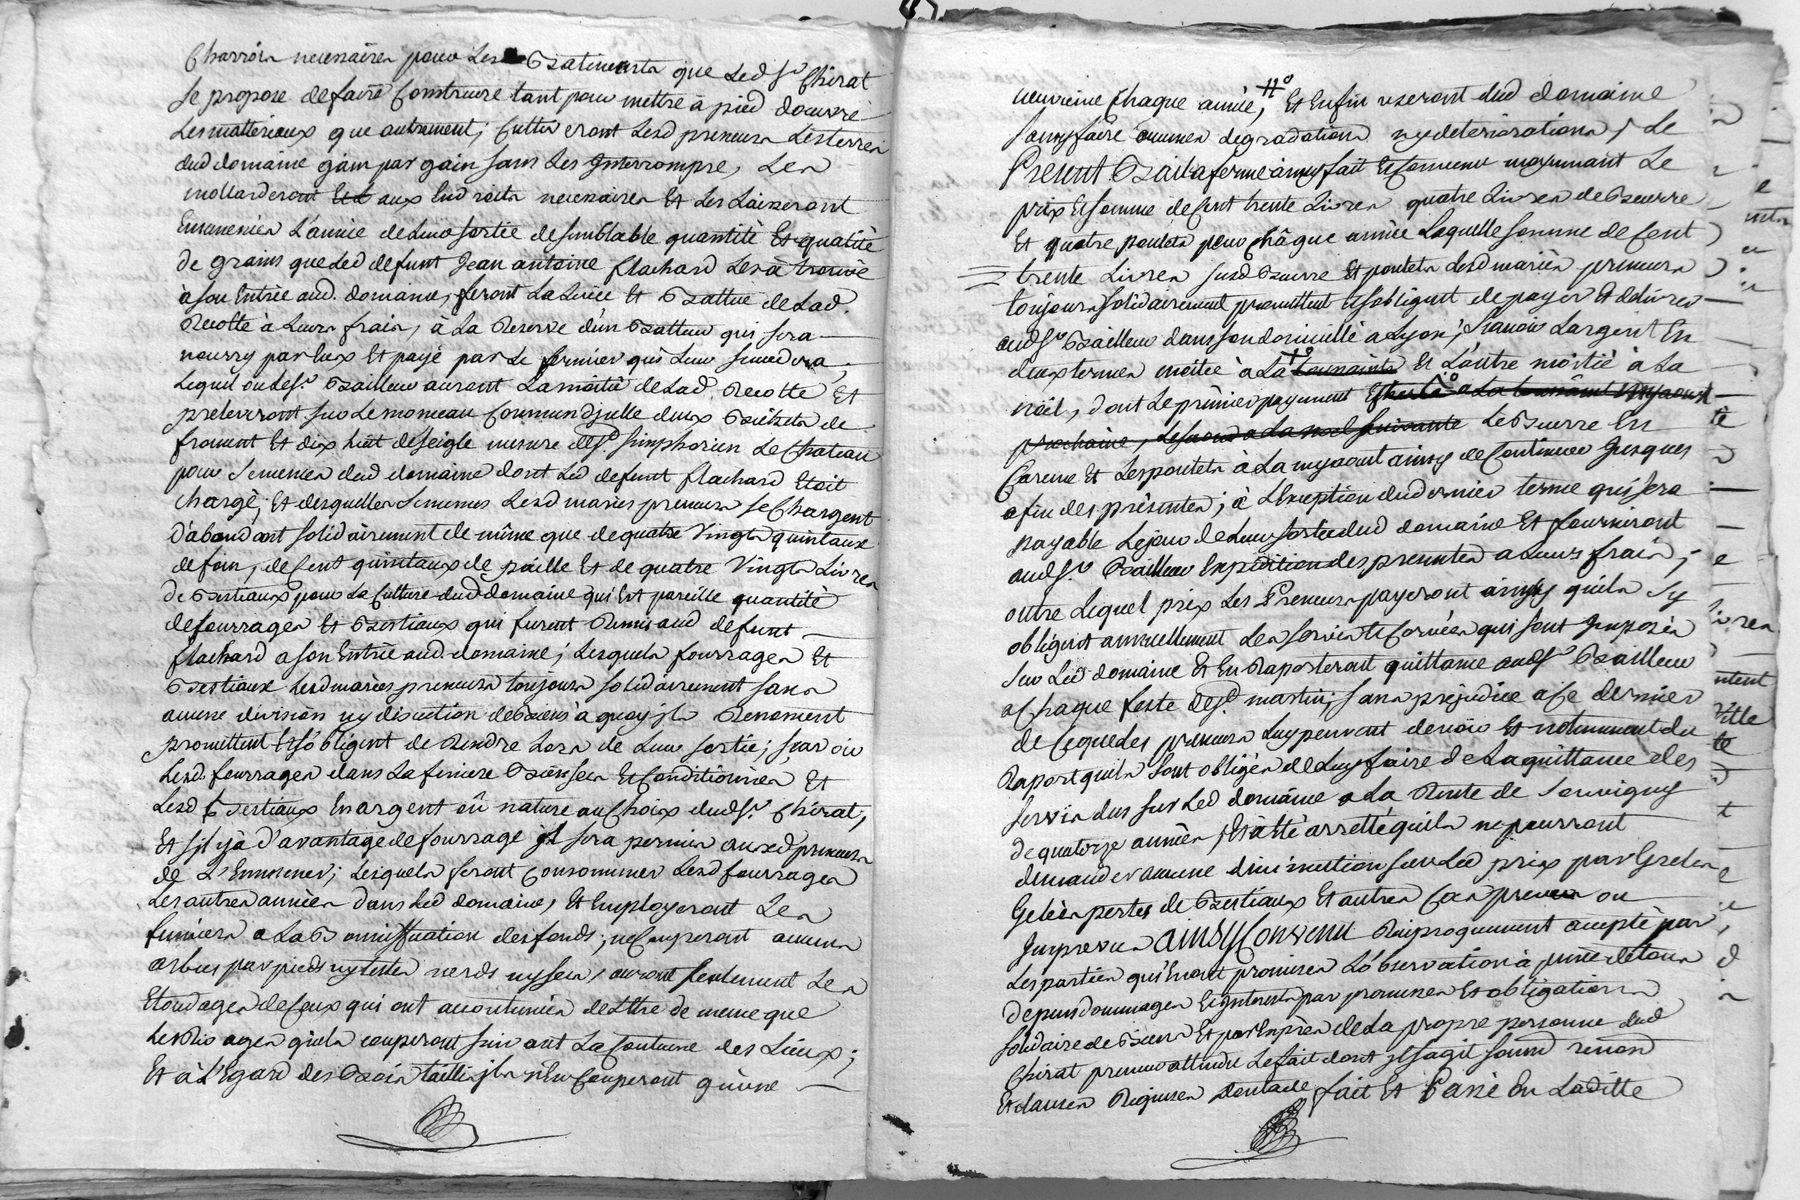 Charrois necessaires pour les Batiments que led Sr Chirat
se propose de faire Construire tant pour mettre à pied doeuvre
les matteriaux que autrement; Cultiveront lesd preneurs les terres
dud domaine gain par gain sans les Interrompre, Les
mollarderont aux Endroits necessaires Et Les Laisseront
Ensemencés L'année de Leur sortie de semblable quantité Et qualité
de grains que Led defunt Jean antoine flachard Les à trouvé
à son Entrée aud. domaine, feront La Levée Et Battue de Lad.
Recolte à Leurs frais, à La Reserve d'un Batteur qui sera
nourry par Eux Et payé par Le fermier qui Leur succedera,
Lequel ou led Sr Bailleur auront La moitié de Lad Recolte Et
preleveront sur Le monceau Commun Jcelle deux Bichets de
froment Et dix huit de seigle mesure de St Simphorien Le Chateau
pour semences dud domaine dont Led defunt flachard Etoit
chargé, Et desquelles semences Lesd mariés preneurs se Chargent
d'abondant solidairement de même que de quatre Vingts quintaux
de foin, de Cent quintaux de paille Et de quatre Vingts Livres
de Bestiaux pour La Culture dud domaine qui Est pareille quantité
de fourrages Et Bestiaux qui furent Remis aud defunt
flachard a son Entrée aud. domaine; Lesquels fourrages Et
Bestiaux Lesd mariés preneurs toujours solidairement sans
aucune division ny discution de Biens à quoy jls Renoncent
promettent Et s'obligent de Rendre Lors de Leur sortie; scavoir
Lesd. fourrages dans La feniere Biensecs Et Conditionnés Et
Lesd Bestiaux En argent où nature au Choix dud Sr. Chirat,
Et s'il y à d'avantage de fourrage jl sera permis auxd preneurs
de L'Emmener; Lesquels feront Consommer Lesd fourrages
Les autres années dans Led domaine, Et Employeront Les
fumiers a La Bonniffication des fonds; ne Couperont aucuns
arbres par pieds ny testes verds ny secs, auront seulement Les
Etondages de Ceux qui ont accoutumés de L'Etre de meme que
Les Bio ages qu'ils couperont suivant La Coutume des Lieux;
Et à L'Egard des Bois taillis jls n'En Couperont qu'une
neuvieme Chaque année, Et Enfin useront dud domaine
sans y faire aucunes degradations ny deteriorations, Le
Present Bail a ferme ainsy fait Et Convenu moyennant Le
prix Et somme de Cent trente Livres quatre Livres de Beurre
Et quatre poulets pour Châque année Laquelle somme de Cent
trente Livres susd Beurre Et poulets Lesd mariés preneurs
toujours solidairement promettent Et s'obligent de payer Et delivrer
aud Sr Bailleur dans son domicille a Lyon, scavoir L'argent En
deux termes moitié à La Et L'autre moitié à La
noël, dont Le prémier payement
prochaine, Le second a La noel suivante Le Beurre En
Careme Et Les poulets à La myaoust ainsy de Continuer Jusques
a fin des présentes; à L'Exception du dernier terme qui sera
payable Le jour de Leur sortie dud domaine Et fourniront
aud Sr. Bailleur Expedition des presentes a Leurs frais;
outre Lequel prix Les Preneurs payeront ainsy quils sy
obligent annuellement Les servis Et Corvées qui sont Jmposés
sur Led domaine Et En Raporteront quittance aud Sr Bailleur
a Chaque feste de St. martin, sans préjudice a Ce dernier
de Ce que Les preneurs Luy peuvent devoir Et notamment du
Raport quils sont obligés de Luy faire de La quittance des
servis dus sur Led domâine a La Rente de Souvigny
de quatorze années, Et à été arretté quils ne pourront
demander aucune diminution sur Led prix par Greles
Gelées pertes de Bestiaux Et autres Cas preveus ou
Jmprevus ainsy Convenu Reciproquement accepté par
Les parties qui En ont promises L'observation à peine de tous
depens dommages Et Jnterests par promesses Et obligations
solidaire de Biens Et par Emprès de La propre personne dud
Chirat preneur attendu Le fait dont jl s'agit soumd renond
Et clauses Requises dont acte fait Et Passé En Laditte